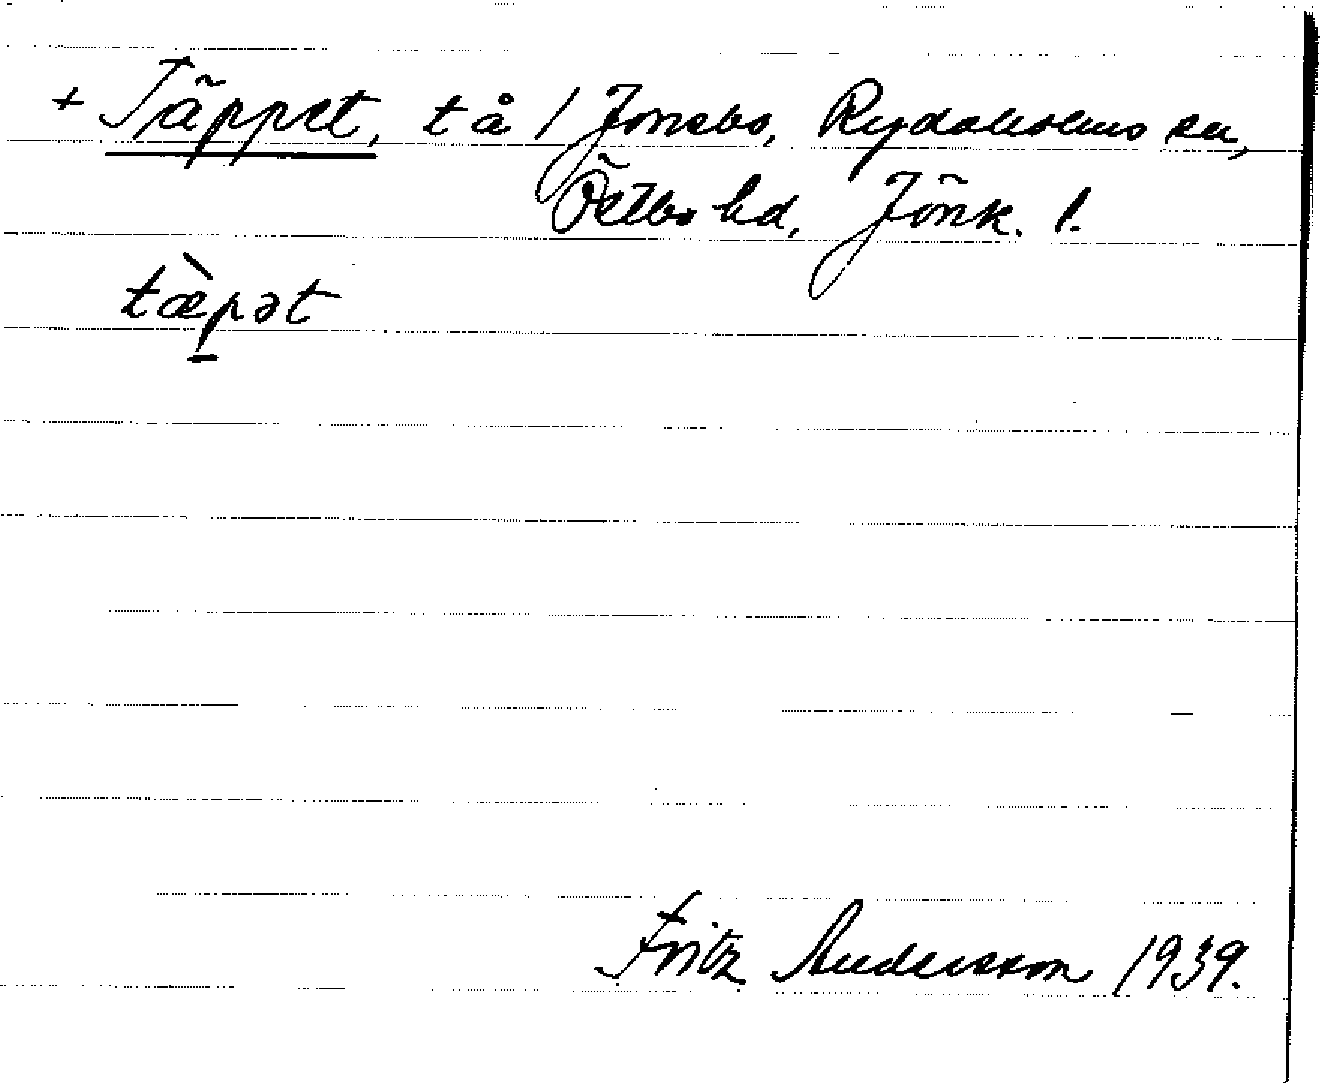 + Täppet, tå / Jonsbo, Rydaholms sn,
Östbo hd, Jönk. l.
tæ̀p̠ət
Fritz Andersson 1939.